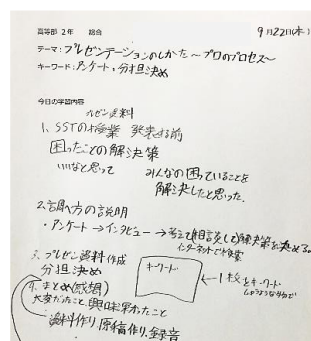 高等部 2年 総合
9月22日(木)
テーマ:プレゼンテーションのしかた〜プロのプロセス〜
キーワード:アンケート・分担決め
今日の学習内容
プレゼン資料
1、SSTの授業 発表する前
困ったことの解決策
いいなと思って みんなの困っていることを
解決したと思った。
2.調べ方の説明
・アンケート→インタビュー→考えて(相談して)解決策を決める。
インターネットで検索
3. プレゼン資料作成
分担決め
キーワード
←1枚にキーワード
4. まとめ(感想)
大変だったこと、興味深かったこと
資料作り、原稿作り、録音